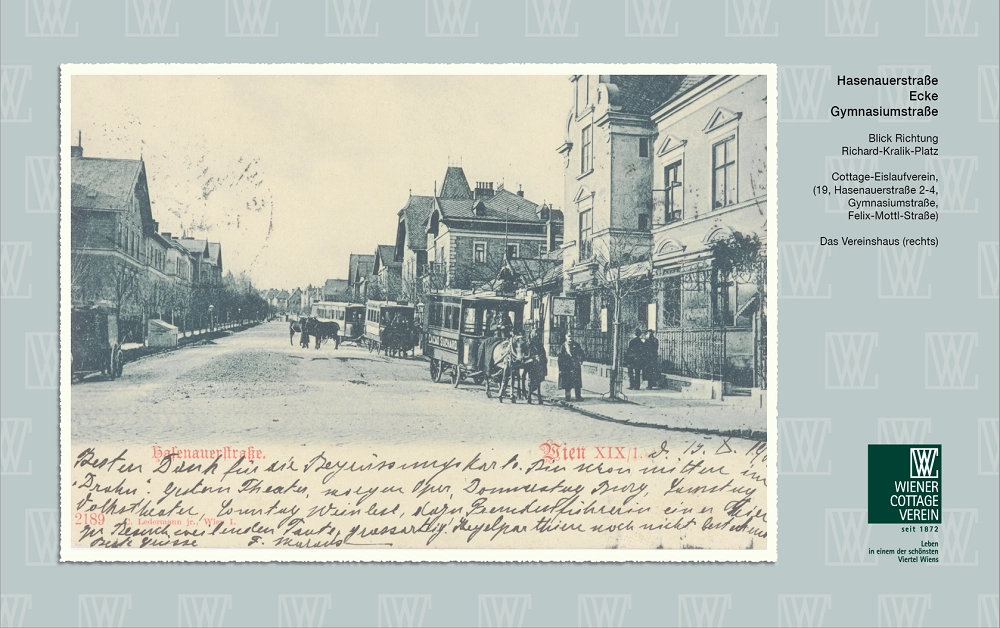 Hasenauerstraße
Ecke
Gymnasiumstraße
Blick Richtung
Richard-Kralik-Platz
Cottage-Eislaufverein,
(19, Hasenauerstraße 2-4,
Gymnasiumstraße,
Felix-Mottl-Straße)
Das Vereinshaus (rechts)
CACAO SUCHARD
Hasenauerstraße.
Wien XIX/1.
d. 15. X. 19
Besten Dank für die Begrüssungskarte. Bin schon mitten im
"Drahn". Gestern Theater, morgen Oper, Donnerstag Burg, Samstag
Volkstheater, Sonntag Weinlese, dazu Fremdenführerin einer hier
zu Besuch weilenden Tante, grossartig. Kegelparthie noch nicht
Beste Grüsse F.
2189 C. Ledermann jr., Wien I.
W
WIENER
COTTAGE
VEREIN
seit 1872
Leben
in einem der schönsten
Viertel Wiens